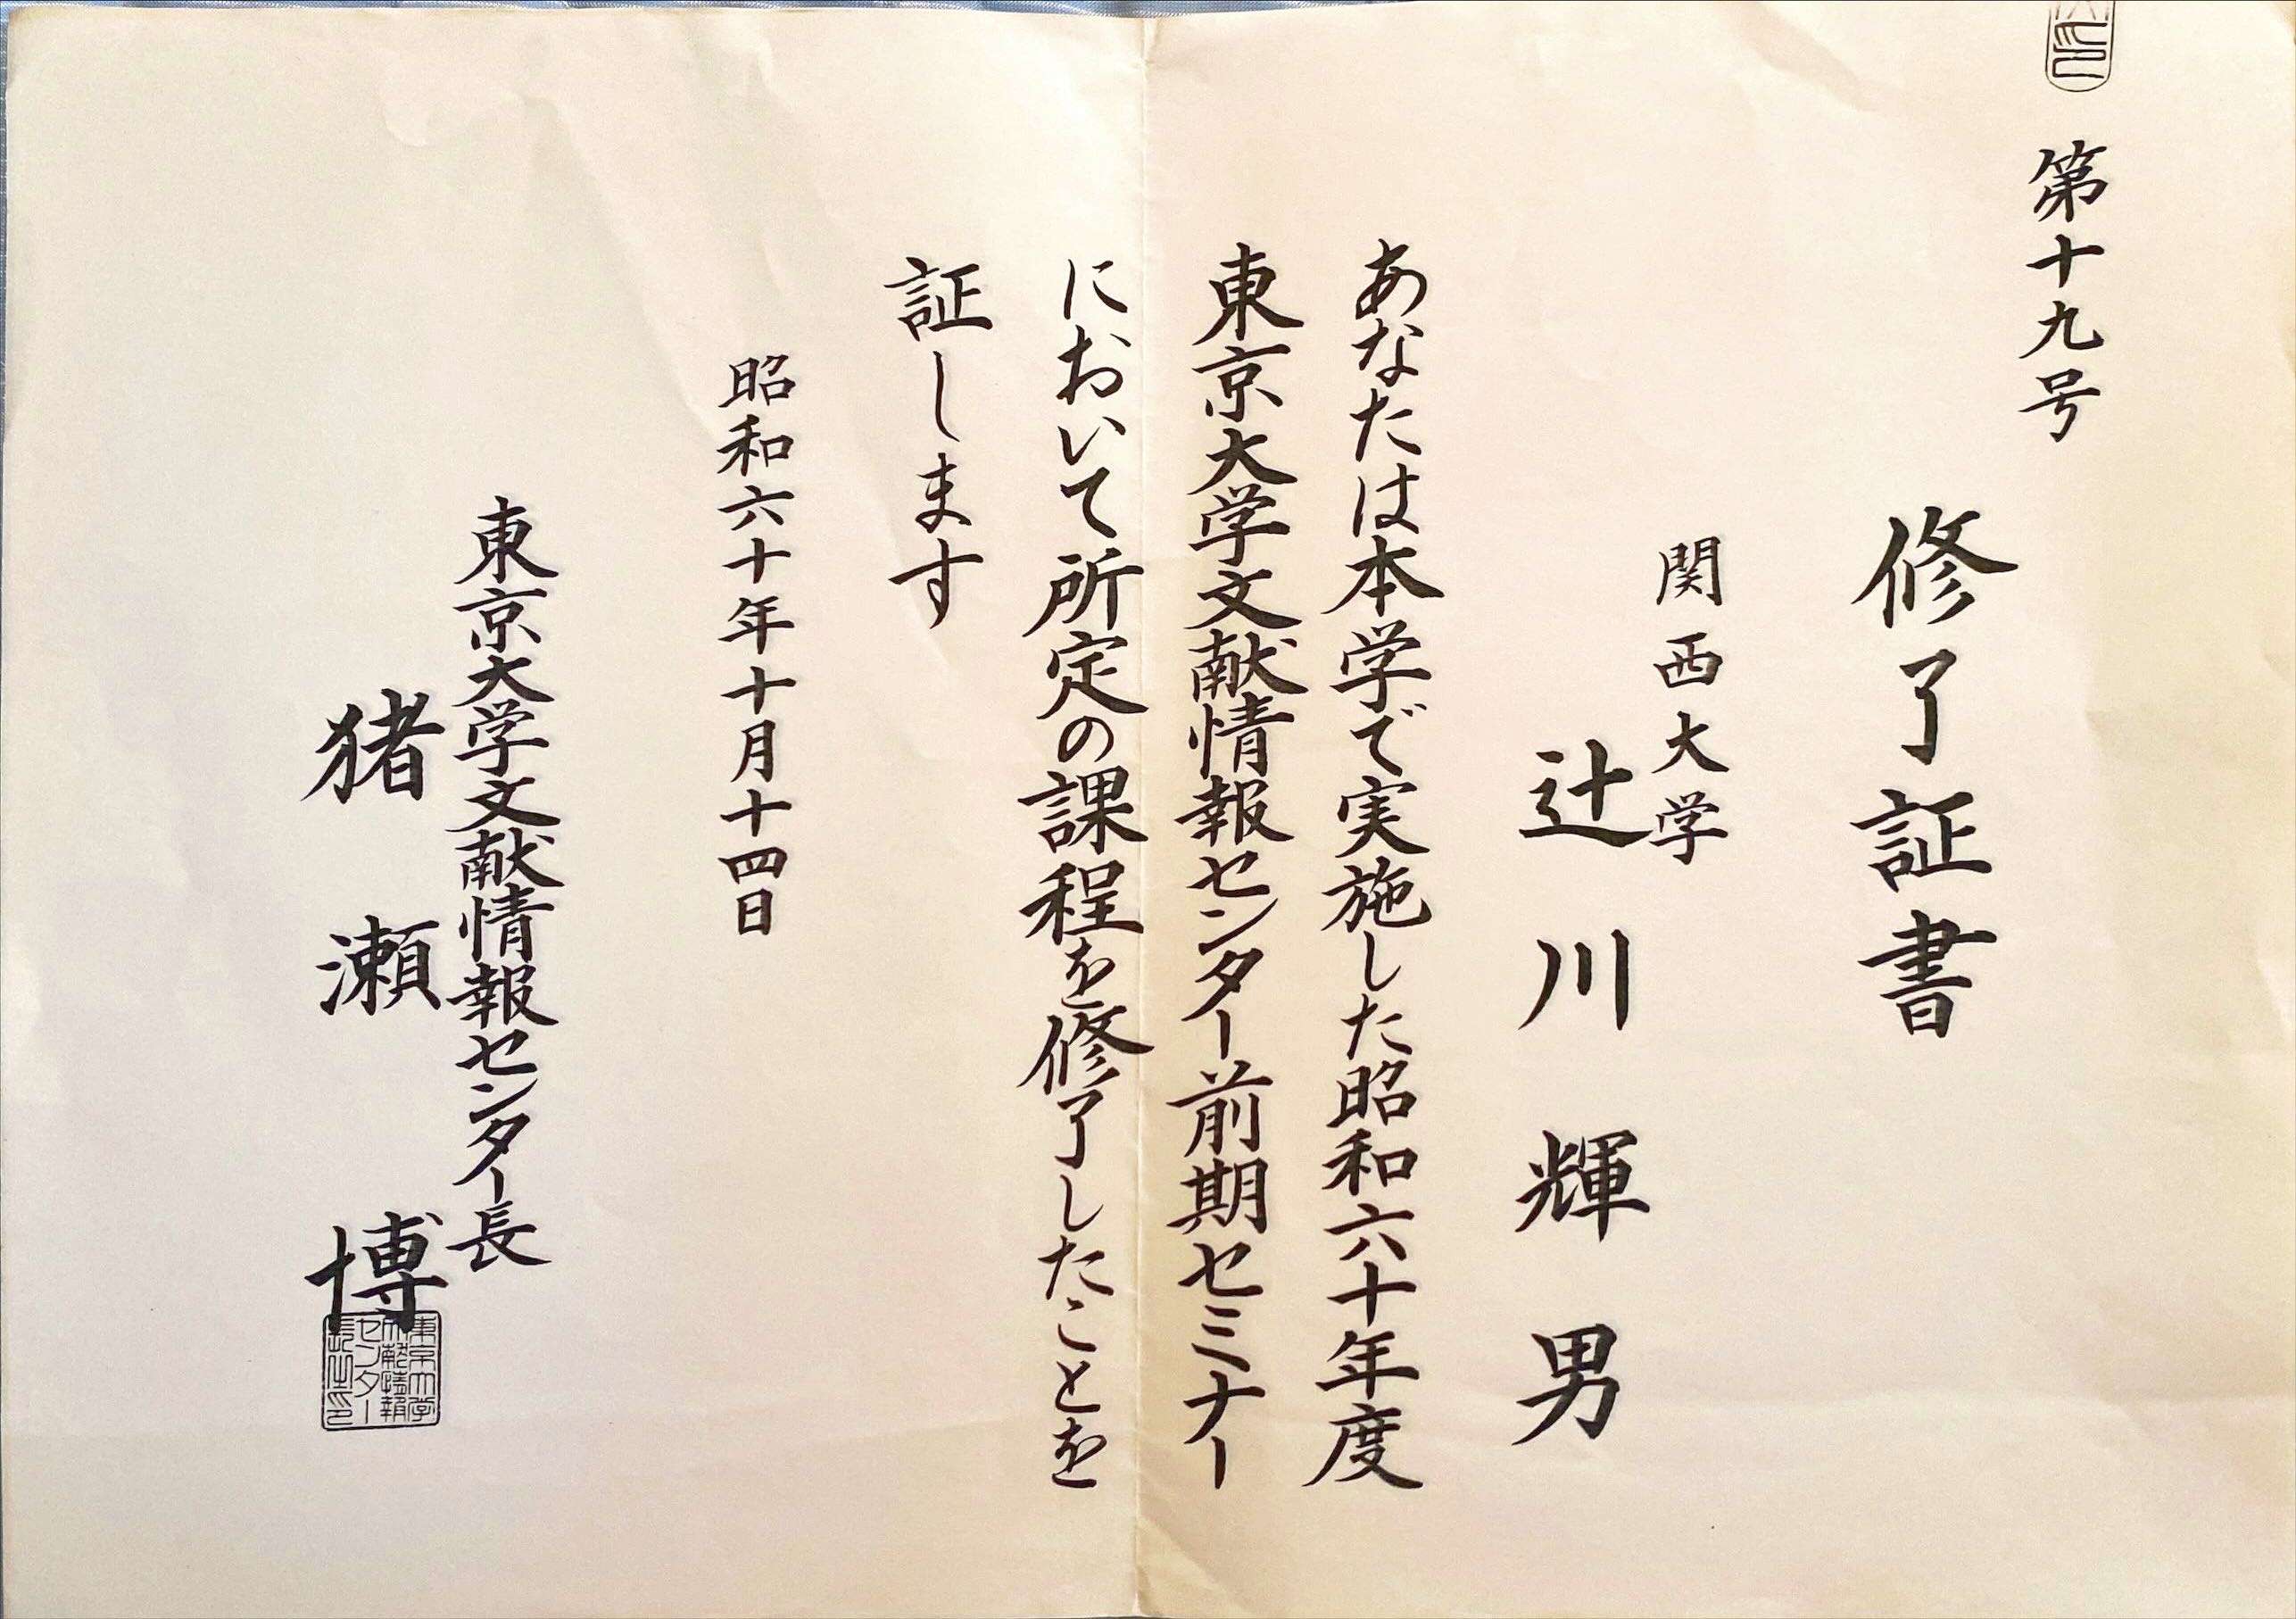 第十九号
修了証書
関西大学
辻川輝男
あなたは本学で実施した昭和六十年度
東京大学文献情報センター前期セミナー
において所定の課程を修了したことを
証します
昭和六十年十月十四日
東京大学文献情報センター長
猪瀬博
東京大学
文献情報
センター
長之印